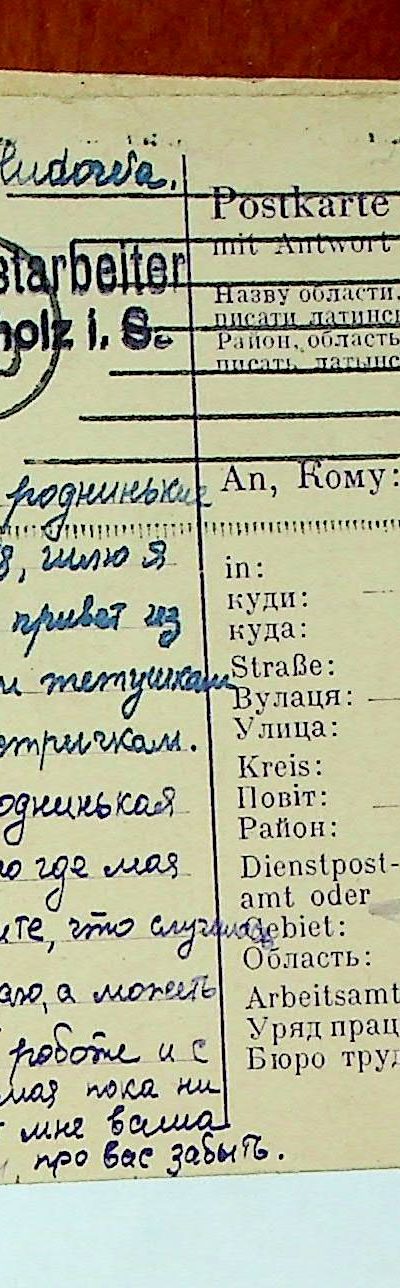 Postkarte
mit Antwort
Назву области,
писати латинс
Район, область
писать латынс
etarbeiter
holz i. S.
An, Кому:
in:
куди:
куда:
Straße:
Вулаця:
Улица:
Kreis:
Повіт:
Район:
Dienstpost-
amt oder
Gebiet:
Область:
Arbeitsamt
Уряд прац
Бюро труд
родниньки
, шлю я
привет из
и тетушкам
стричкам.
одинькая
о где мая
ите, что случилось
аю, а можеть
роботе и с
мая пока ни
мне ваша
про вас забыть.